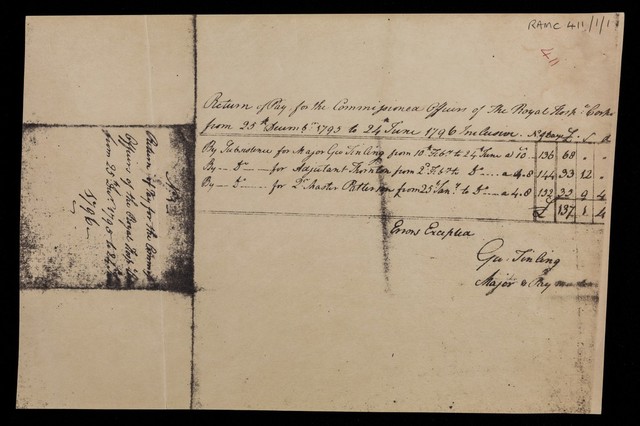 RAMC 411/1/1
411
Return of Pay, for the Commissioned Officers of The Royal Hosp.l Corps
from 25th Decemb.r 1795 to 24th June 1796 Inclusive. N. of days £. s. d
By Subsistence for Major Geo: Tinling from 10th Feb.y to 24th June a 10.. 136 68 " "
By — D.o — for Adjutant Thornton from 2d Feb.y to D.o .... a 4.8 144 33 12 "
By — D.o — for Q.r Master Patterson from 25th Jan.y to D.o .... a 4.8 152 35 9 4
£ 137 1 4
Errors Excepted
Geo: Tinling
Major & Pay master
Return of Pay for the Commiss
Officers of the Royal Hosp.l
from 25 Dec.r 1795 to 24th
1796